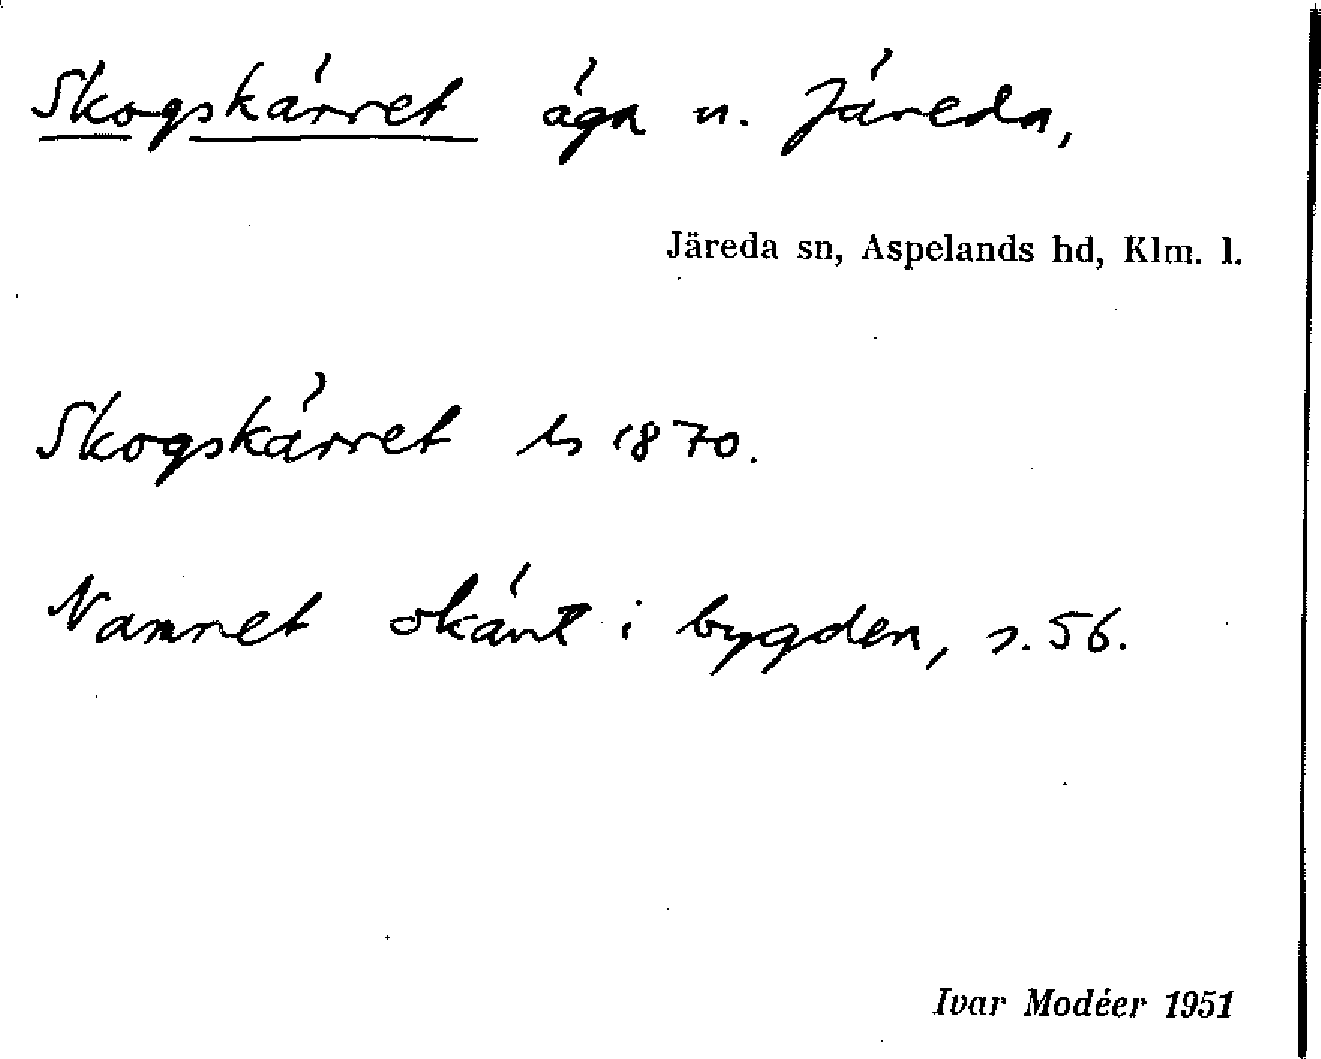 Skogskärret äga u. Järeda,
Järeda sn, Aspelands hd, Klm. l.
Skogskärret ls 1870.
Namnet okänt i bygden, s. 56.
Ivar Modéer 1951